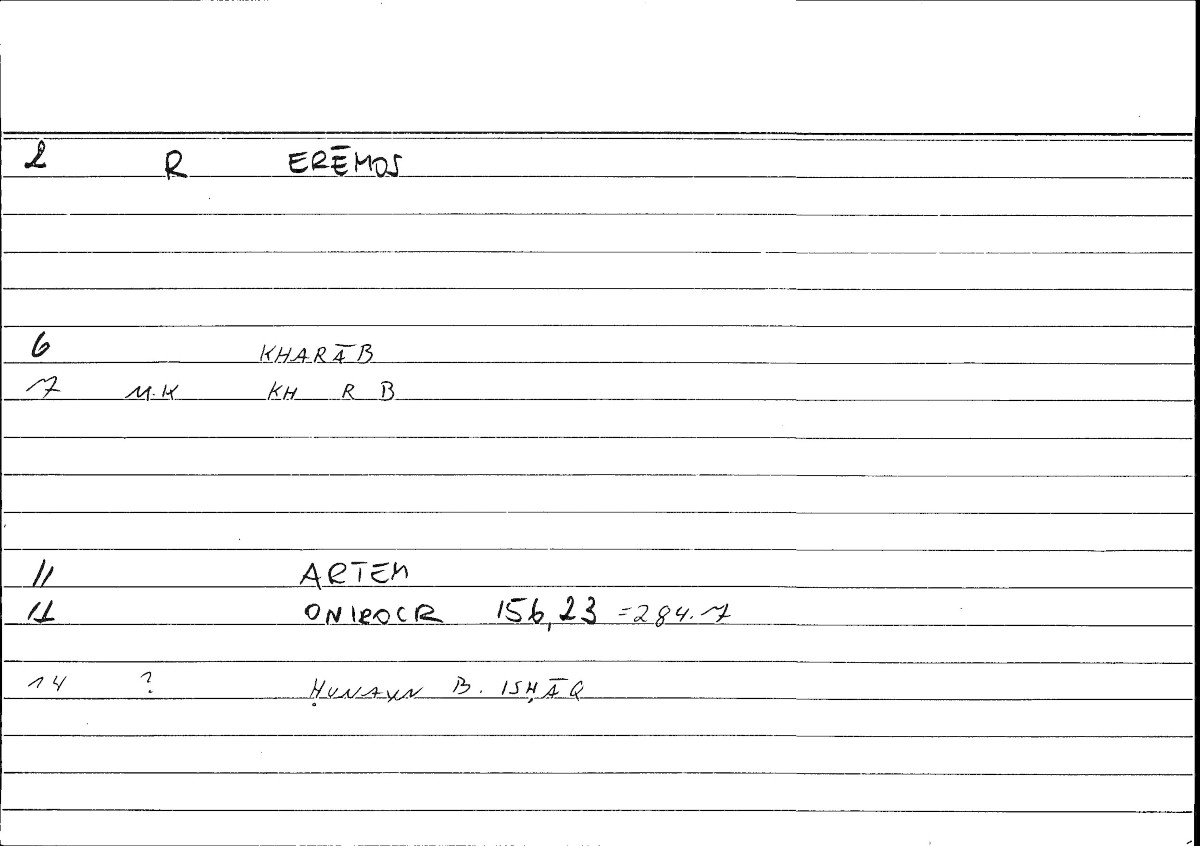 2 R ERĒMOS
6 KHARĀB
7 M.K KH R B
11 ARTEM
11 ONIROCR 156,23 =284.7
14 ? ḤUNAYN B. ISḤĀQ